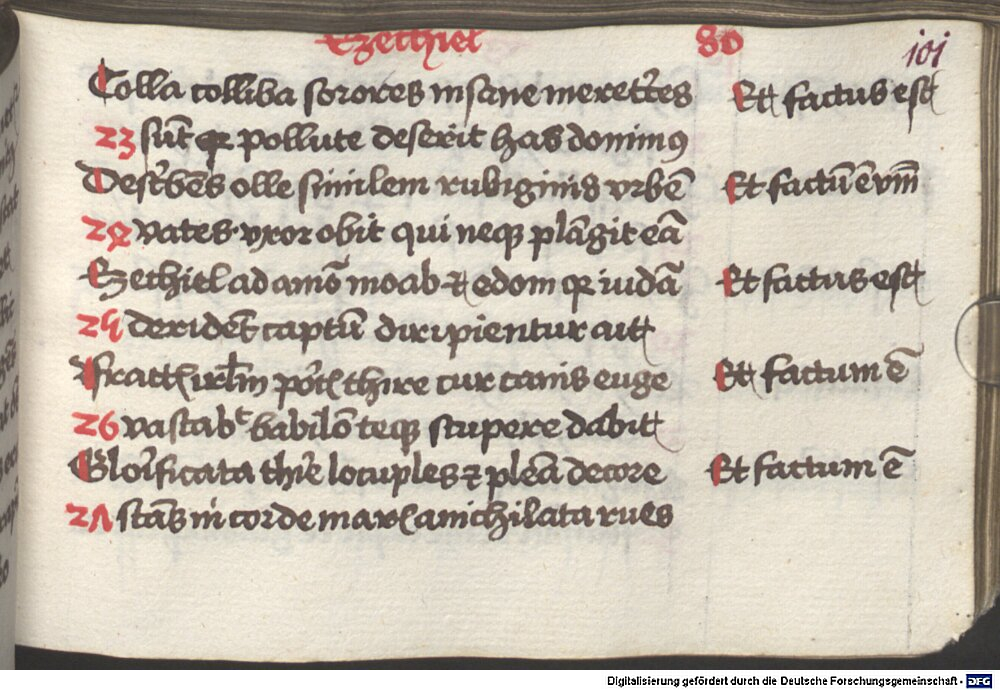 Ezethiel 80 101
Colla colliba sorores insane meret̄ces Et factus est
23 sūt qꝛ pollute deserit has dominꝰ
Describēs olle similem rubiginis vrbē Et factū ē vim̄
24 vates vxor obit qui neqꝫ plāgit eā
Ezethiel ad amō moab ⁊ edom qꝛ iudā Et factus est
25 derident captū diripientur ait
Fracte irl̄m porte thire cur canis euge Et factum ē
26 vastabᵗ babilō teqꝫ stupere dabit
Glorificata thire locuples ⁊ plēa decore Et factum ē
27 stās in corde maris anichilata rues
Digitalisierung gefördert durch die Deutsche Forschungsgemeinschaft - DFG